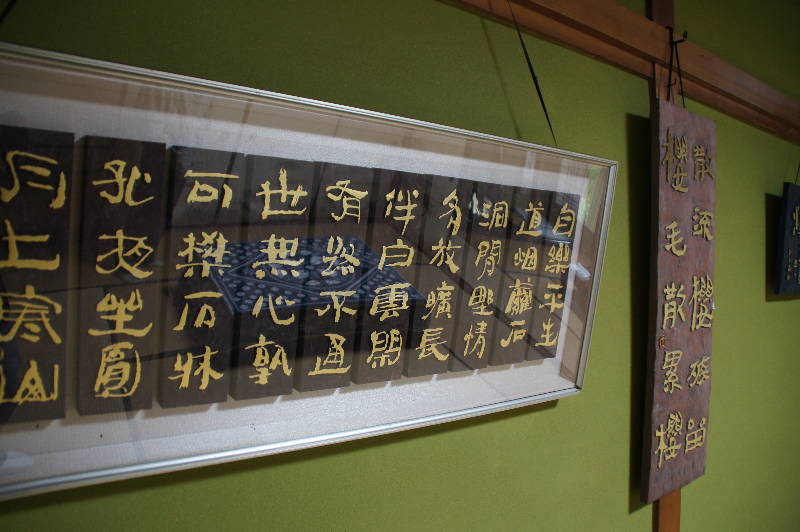 自樂平生
道烟蘿石
洞間野情
多放曠長
伴白雲閑
有路不通
世無心孰
可攀石牀
孤夜坐圓
月上寒山
散流
毛散累櫻